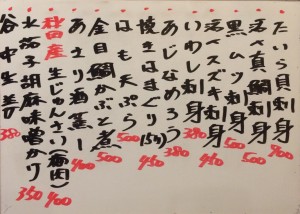 たいら貝刺身 900
活〆真鯛刺身 500
黒ムツ刺身 500
活〆スズキ刺身 450
いわし刺身 380
あじなめろう 450
焼きはまぐり(5ケ) 450
はも天ぷら 500
金目鯛かぶと煮 500
あさり酒蒸し 400
秋田産 生じゅんさい(酢肉) 400
水茄子胡麻味噌かけ 350
谷中生姜 380